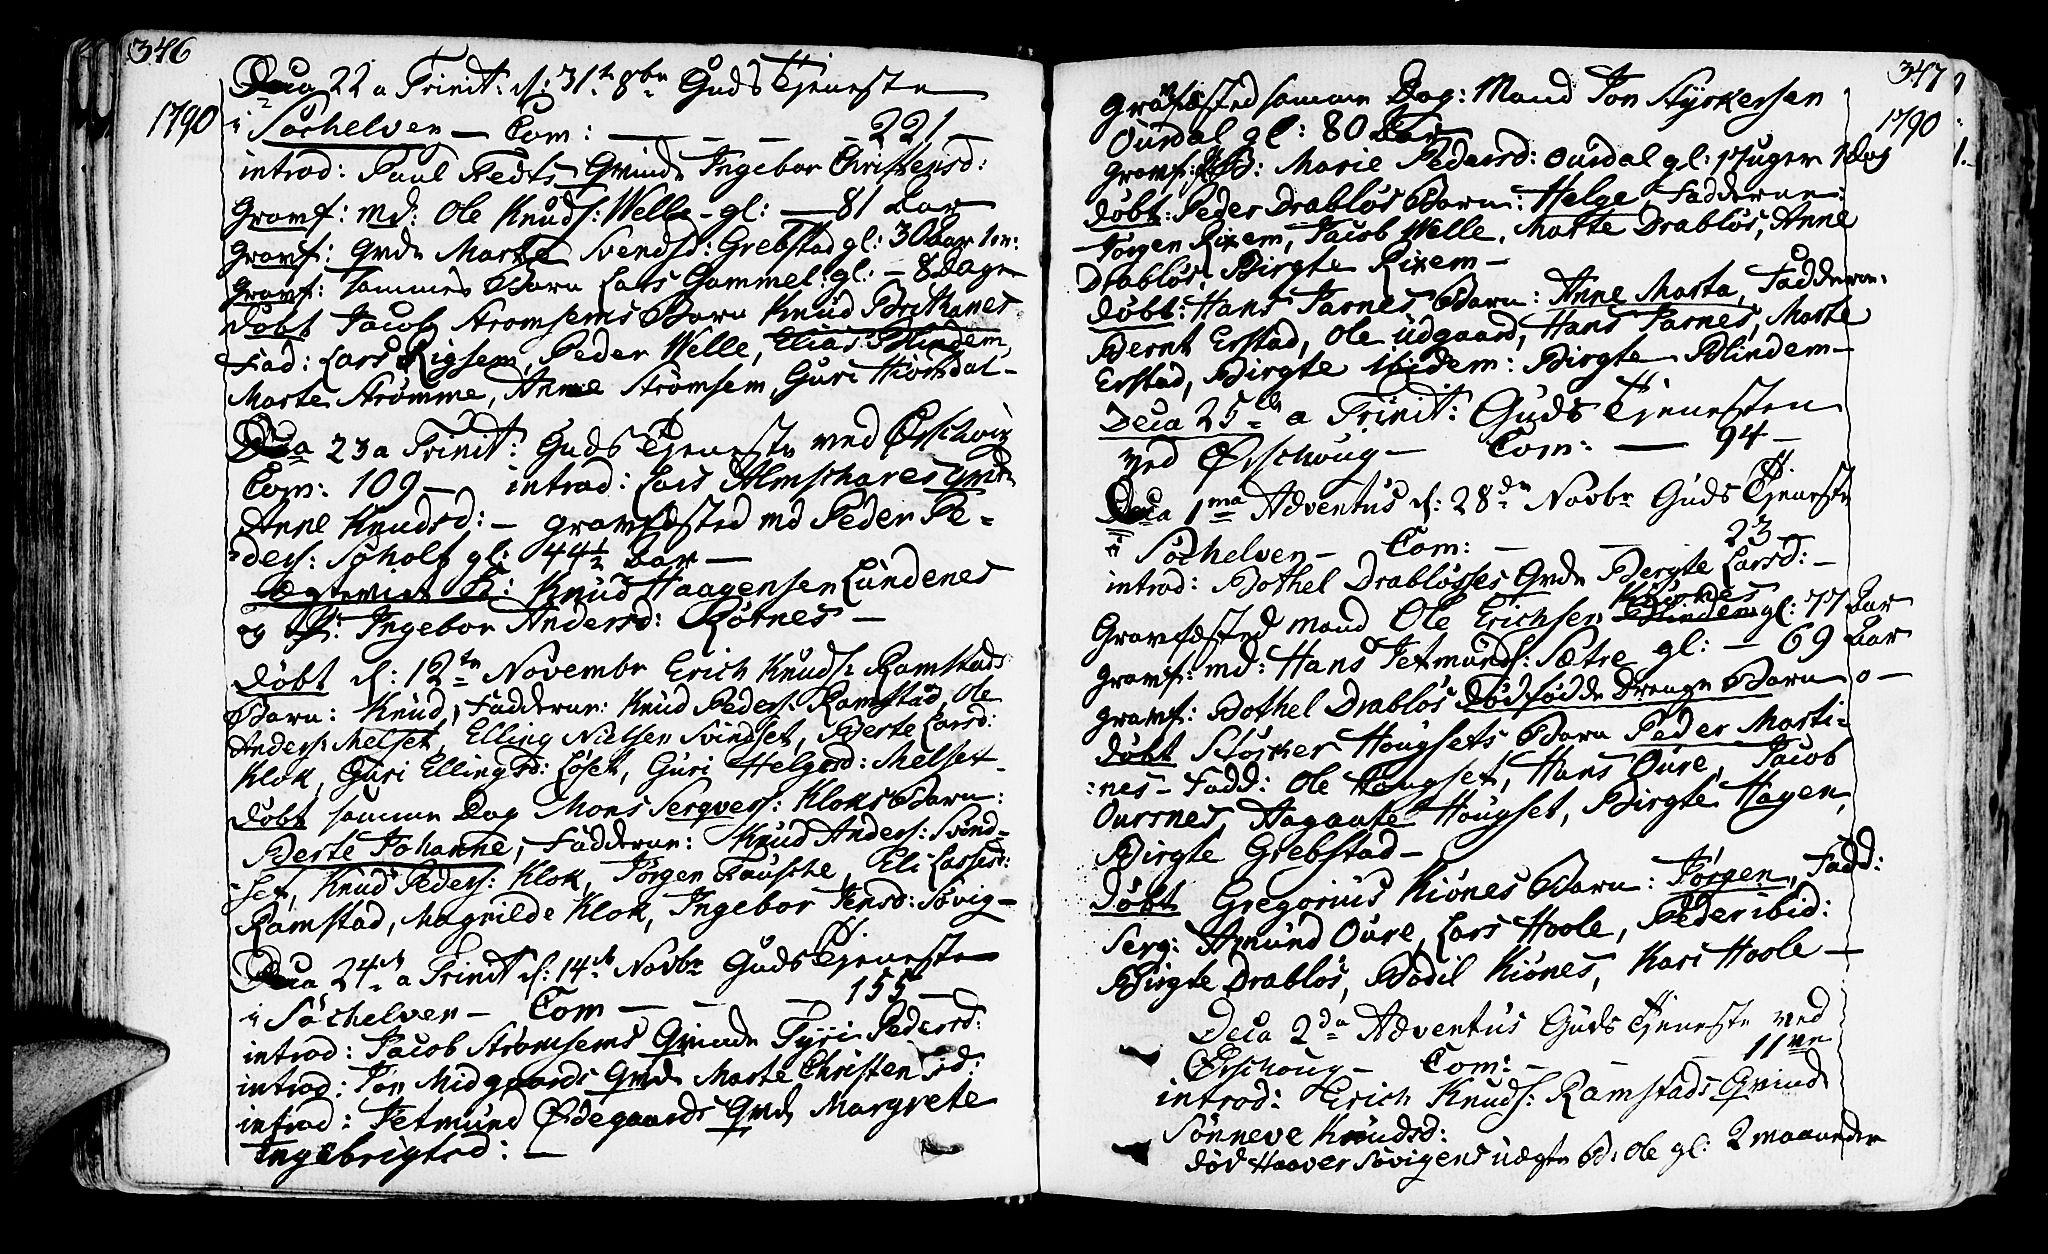 346
1790
Dca 22 a Trinit: d: 31te 8br Guds Tjeneste
i Söchelven — Com: — — — 221 —
introd: Paul Fedts Qvinde Ingebor Christensd:
Gravf: md: Ole Knuds: Welle – gl: — 81 Aar
Gravf: Qvde Marte Svendsd: Grebstad gl: 30 Aar
Gravf: sammes Barn Lars Gammel: gl: – 8 Dage
døbt Jacob Strømsems Barn Knud Brithanes
Fad: Lars Rigsem, Peder Welle, Elias Blindem,
Marte Strømme, Anne Strømsem, Guri Hiortdal –
Dca 23 a Trinit: Guds Tjeneste ved Ørschoug
Com: 109 — introd: Lars Almschares Qvde
Anne Knudsd: – gravfæsted md Peder Pe=
ders: Søholt gl: 44½ Aar —
Egteviet K: Knud Haagensen Lundenes
og P: Ingebor Andersd: Rörnes —
døbt d: 12te Novembr Erich Knuds: Ramstads
Barn: Knud, Fadderne: Knud Peders: Ramstad, Ole
Anders: Melset, Elling Nielsen Svindset, Berte Larsd:
Klok, Guri Ellingsd: Løset, Guri Helgesd: Melset –
døbt samme Dag Mons Sergvers: Kloks Barn:
Berte Johanne, Fadderne: Knud Anders: Svind=
set, Knud Peders: Klok, Jörgen Fausche, Eli Larsesd:
Ramstad, Magnilde Klok, Ingebor Jensd: Søvig –
Dca 24de a Trinit d: 14de Novbr Guds Tjeneste
i Söchelven – Com — — — 155 —
introd: Jacob Strømsems Qvinde Fyri Pedersd:
introd: Jon Midgaards Qvde Marte Christensd:
introd: Jetmund Ødegaards Qvde Margrete
Ingebrigtsd: —
347
1790
Gravfæsted samme Dag: Mand Jon Styrkersen
Ourdal gl: 80 Aar
Gravf: PB: Marie Pedersd: Ourdal gl: 1 Dag
døbt: Peder Drabløs Barn: Helge, Fadderne:
Jörgen Rixem, Jacob Welle, Marte Drabløs, Anne
Drabløs, Birgte Rixem –
døbt: Hans Tarnes Barn: Anne Marta, Fadderne:
Bernt Erstad, Ole Udgaard, Hans Tarnes, Marte
Erstad, Birgte ibidem: Birgte Blindem –
Dca 25de a Trinit: Guds Tjenesten
ved Ørschoug – Com: — 94 –
Dca 1ma Adventus d: 28de Novbr Guds Tjeneste
i Söchelven – Com: – — 23 –
introd: Bothel Drabløsses Qvde Bergte Larsd: –
Gravfæsted mand Ole Erichsen gl: 77 Aar
Gravf: md: Hans Jetmunds: Sætre gl: – 69 Aar
gravf: Bothel Drabløs Dødfødde Drenge Barn o –
døbt Stycker Hougsets Barn Peder Marti=
:nes – Fadd: Ole Hougset, Hans Oure, Jacob
Oursnes, Aagaate Hougset, Birgte Hagen,
Birgte Grebstad –
døbt Gregorius Kiönes Barn: Jörgen, Fadd:
Serg: Amund Oure, Lars Hoole, Peder ibid:
Birgte Drabløs, Bodil Kiönes, Kari Hoole —
Dca 2da Adventus Guds Tjeneste ved
Ørschoug – Com: – — 11ve
introd: Erich Knuds: Ramstads Qvinde
Sønneve Knudsd:
død Haaver Søvigens uægte B: Ole gl: 2 maaneder